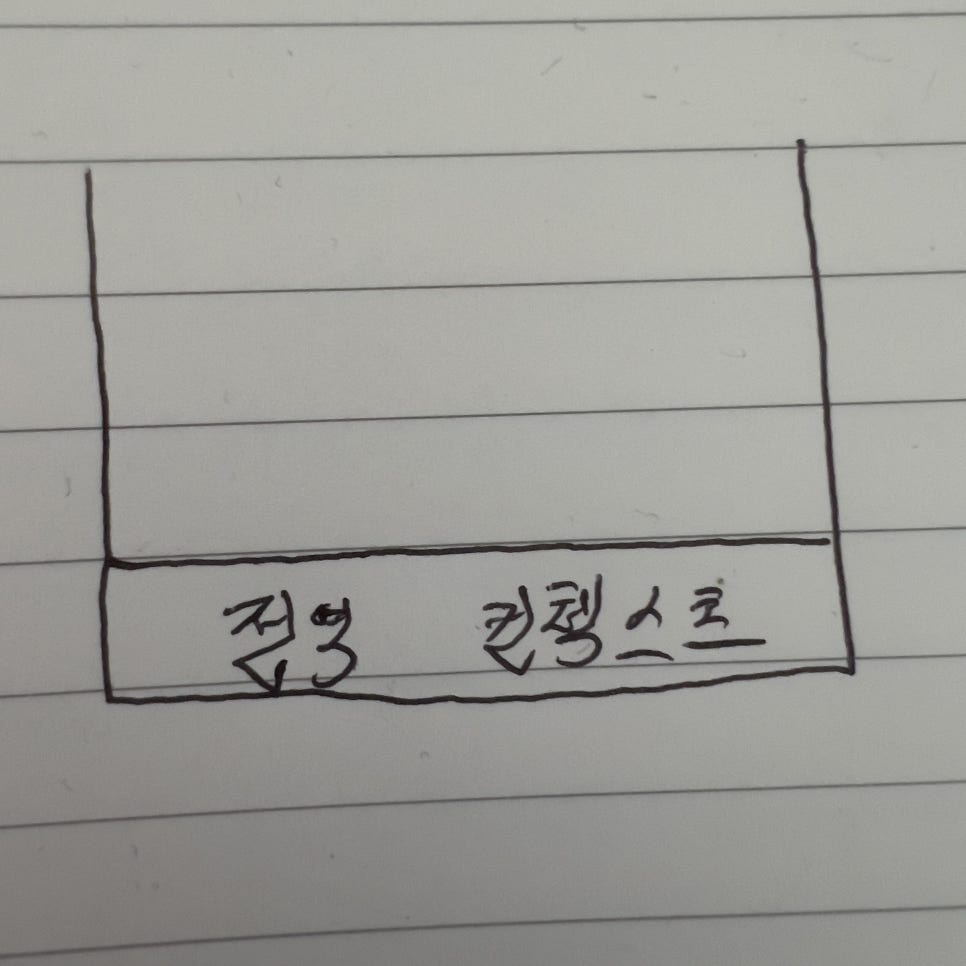 전역 컨텍스트